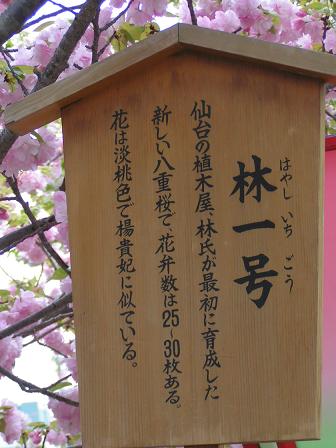 はやし いち ごう
林一号
仙台の植木屋、林氏が最初に育成した
新しい八重桜で、花弁数は25~30枚ある。
花は淡桃色で楊貴妃に似ている。